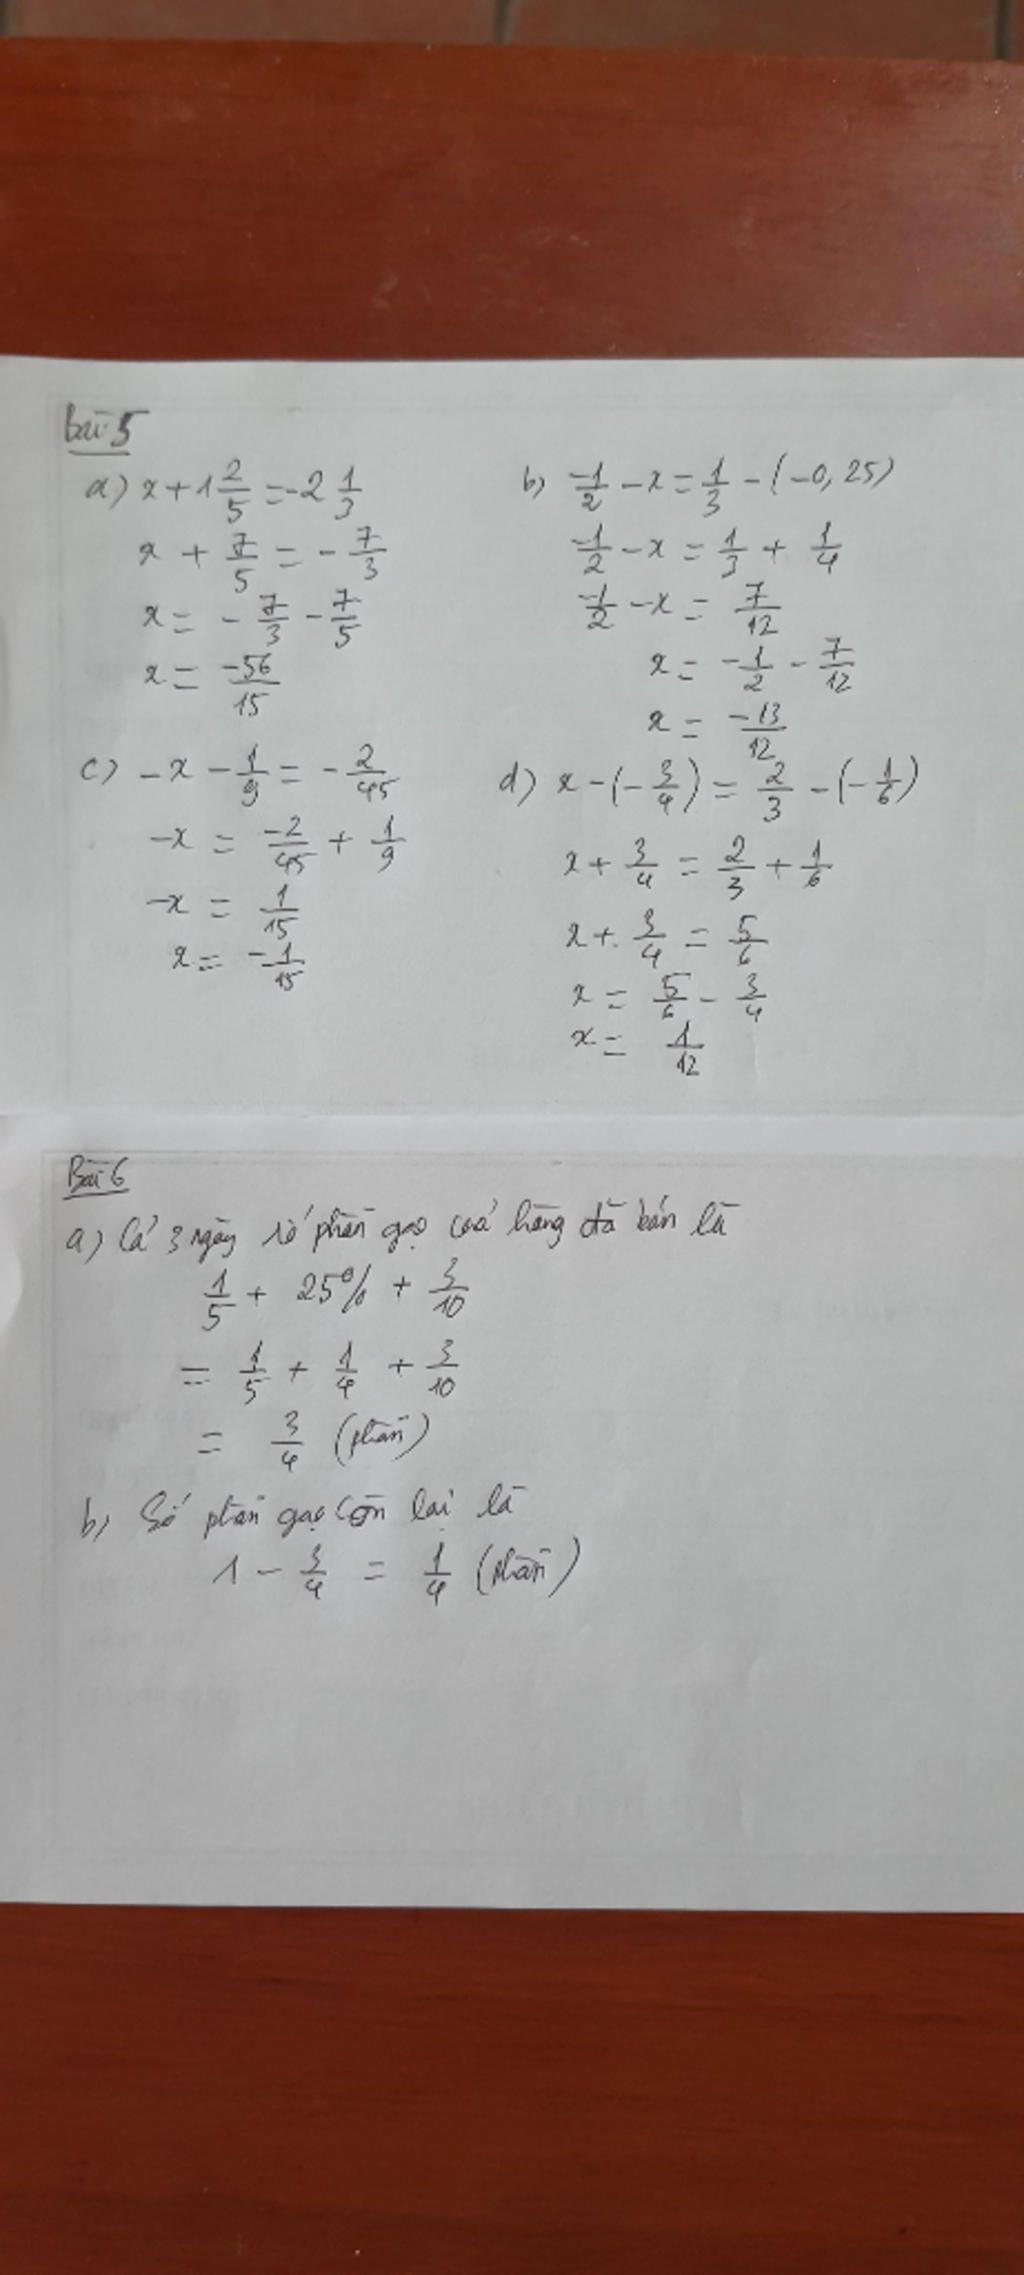 Bài 5
a) x + 1 2/5 = -2 1/3
x + 7/5 = - 7/3
x = - 7/3 - 7/5
x = -56/15
b) -1/2 - x = 1/3 - (-0,25)
-1/2 - x = 1/3 + 1/4
-1/2 - x = 7/12
x = -1/2 - 7/12
x = -13/12
c) -x - 1/9 = - 2/45
-x = -2/45 + 1/9
-x = 1/15
x = -1/15
d) x - (- 3/4) = 2/3 - (- 1/6)
x + 3/4 = 2/3 + 1/6
x + 3/4 = 5/6
x = 5/6 - 3/4
x = 1/12
Bài 6
a) Cả 3 ngày số phần gạo cửa hàng đã bán là
1/5 + 25% + 3/10
= 1/5 + 1/4 + 3/10
= 3/4 (phần)
b) Số phần gạo còn lại là
1 - 3/4 = 1/4 (phần)